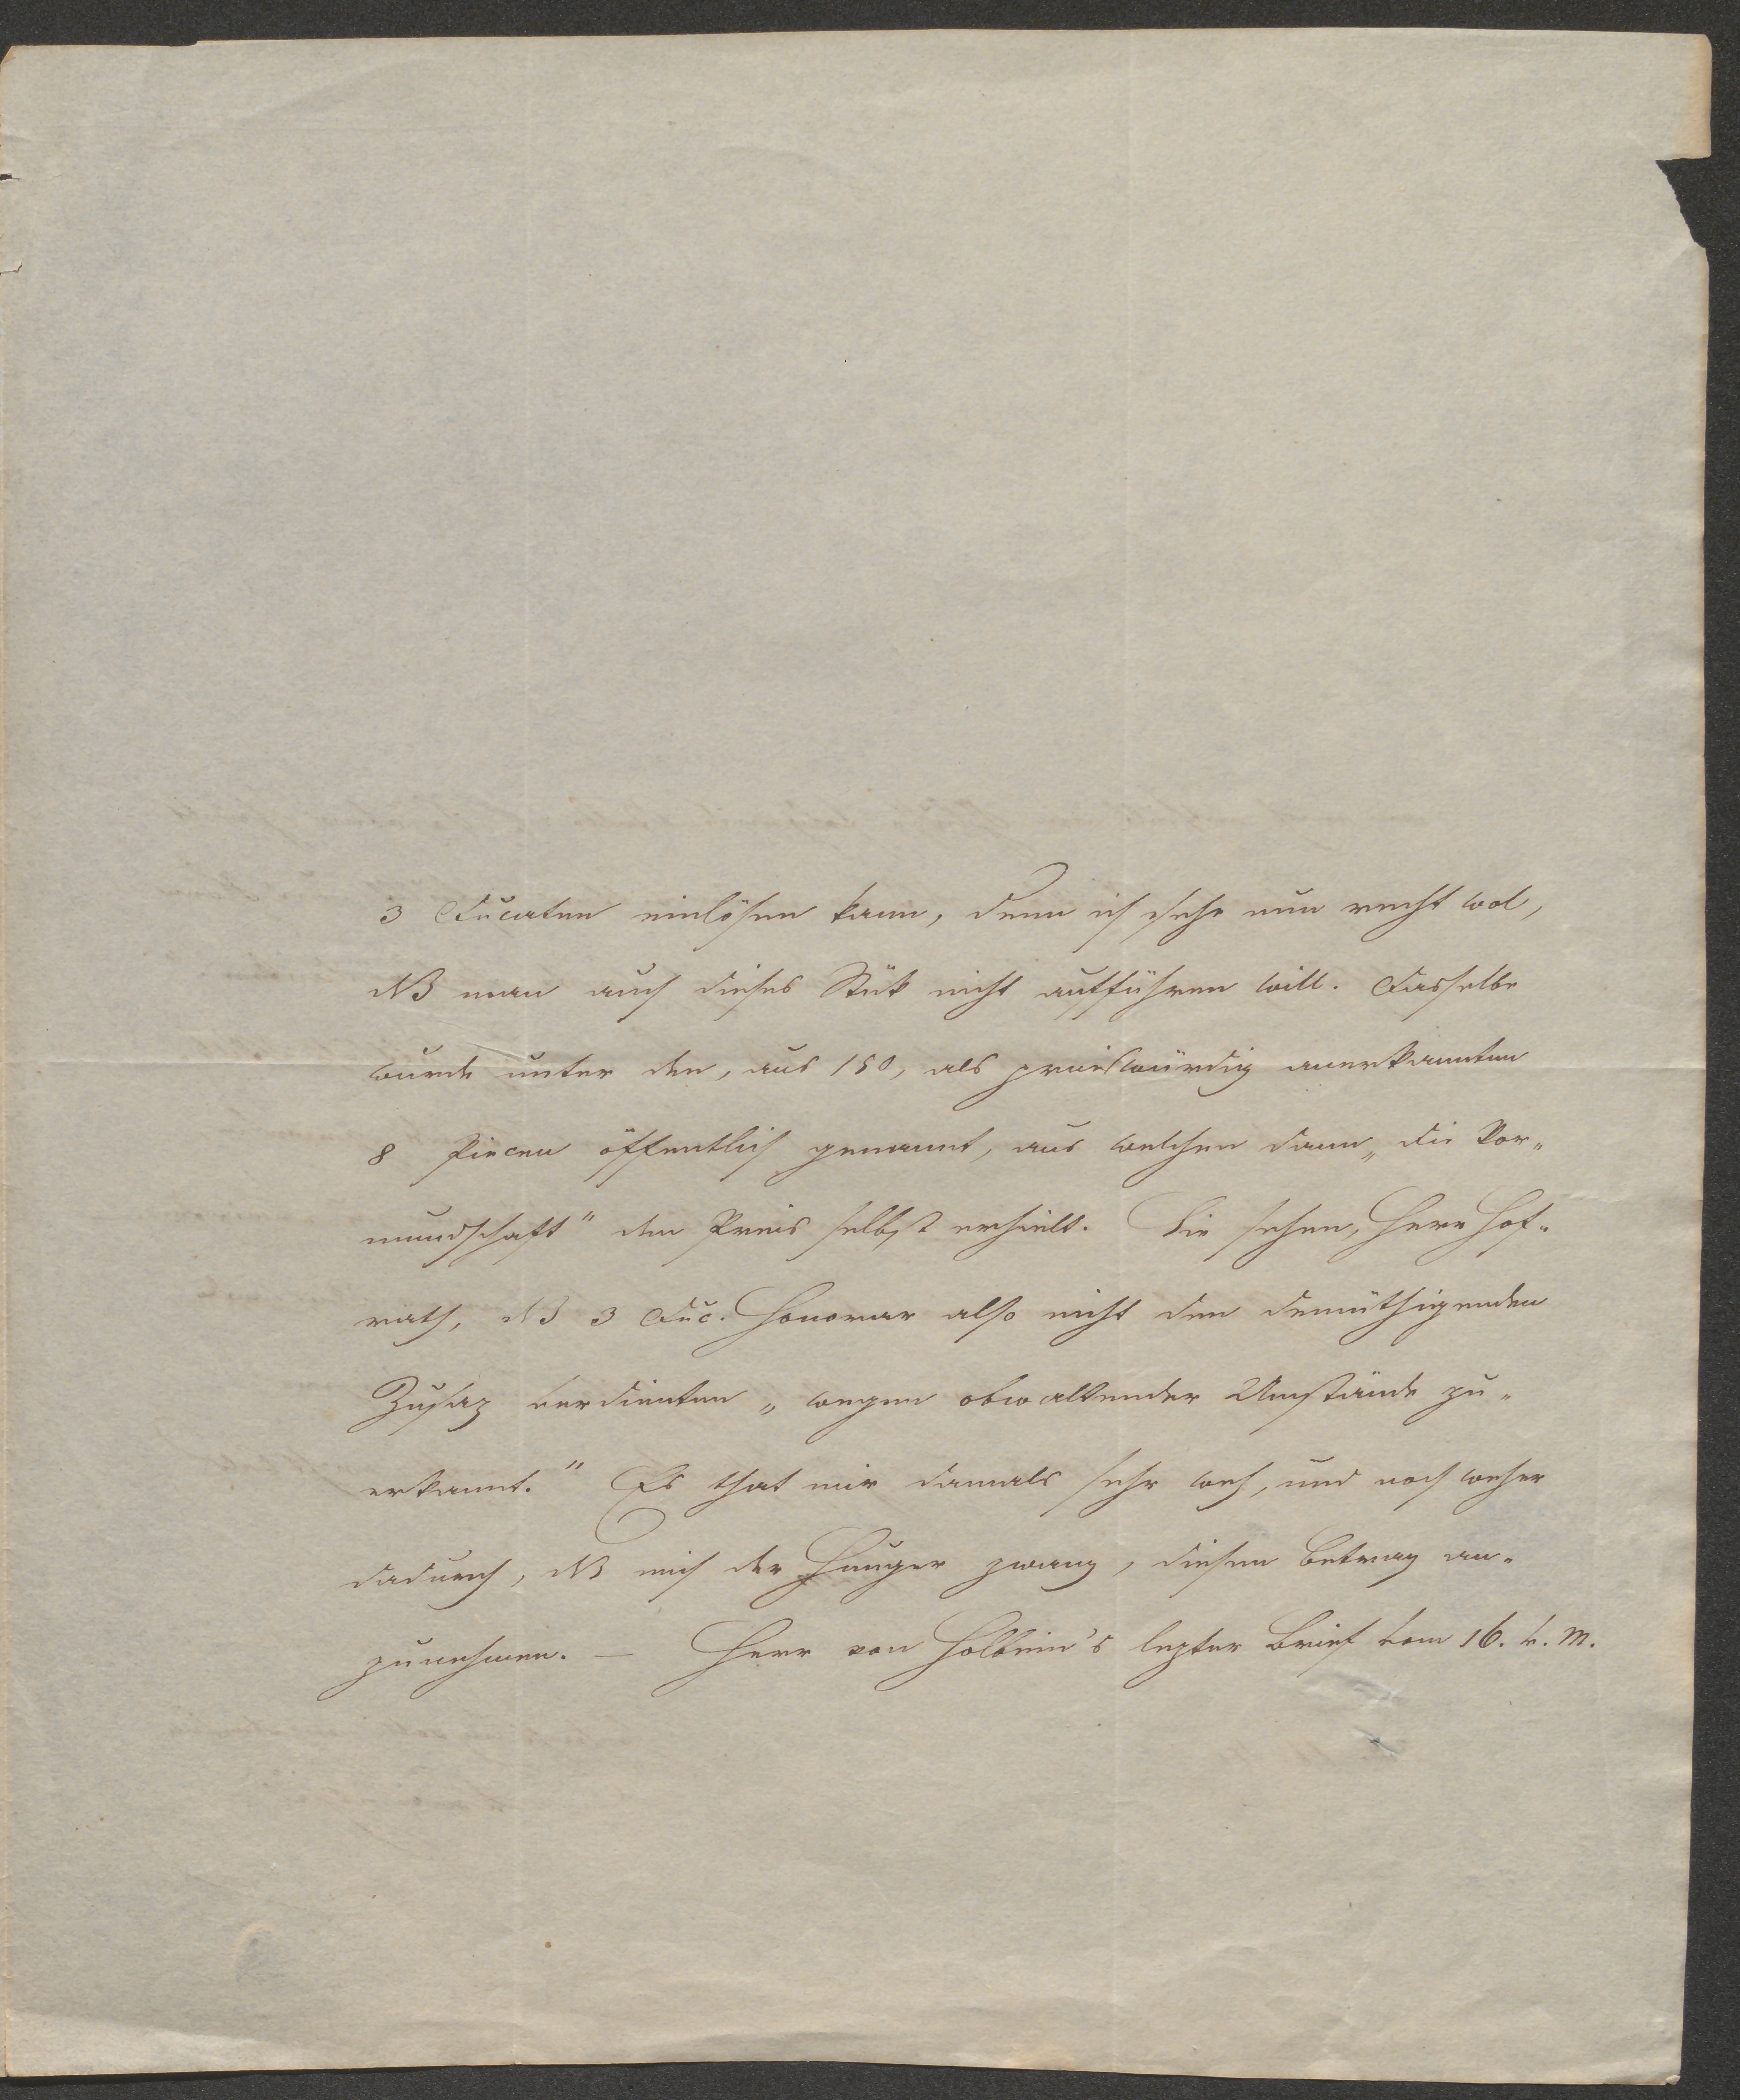 3 Ducaten einlösen kann, denn ich sehe nun recht wol,
dß man auch dieses Stük nicht aufführen will. Dasselbe
wurde unter den, aus 150, als preiswürdig anerkannten
8 Piecen öffentlich genannt, aus welchen dann „die Vor-
mundschaft" den Preis selbst erhielt. Sie sehen, Herr Hof-
rath, dß 3 Duc. Honorar also nicht den demüthigenden
Zusaz verdienten „wegen obwaltender Umstände zu-
erkannt." Es that mir damals sehr weh, und noch weher
dadurch, dß mich der Hunger zwang, diesen Betrag an-
zunehmen. — Herr von Holbein's lezter Brief vom 16. v. M.